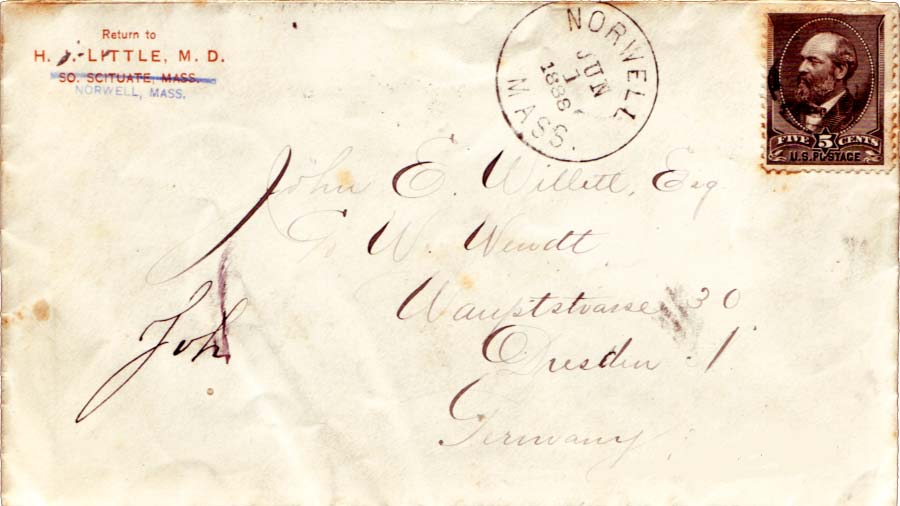 Return to
H. J. LITTLE, M. D.
SO. SCITUATE, MASS.
NORWELL, MASS.
NORWELL
JUN
1
1888
MASS.
FIVE 5 CENTS
U.S. POSTAGE
John E. Willett, Esq
G. W. Wendt
Wauptstrasse 30
Dresden 1
Germany
Joh